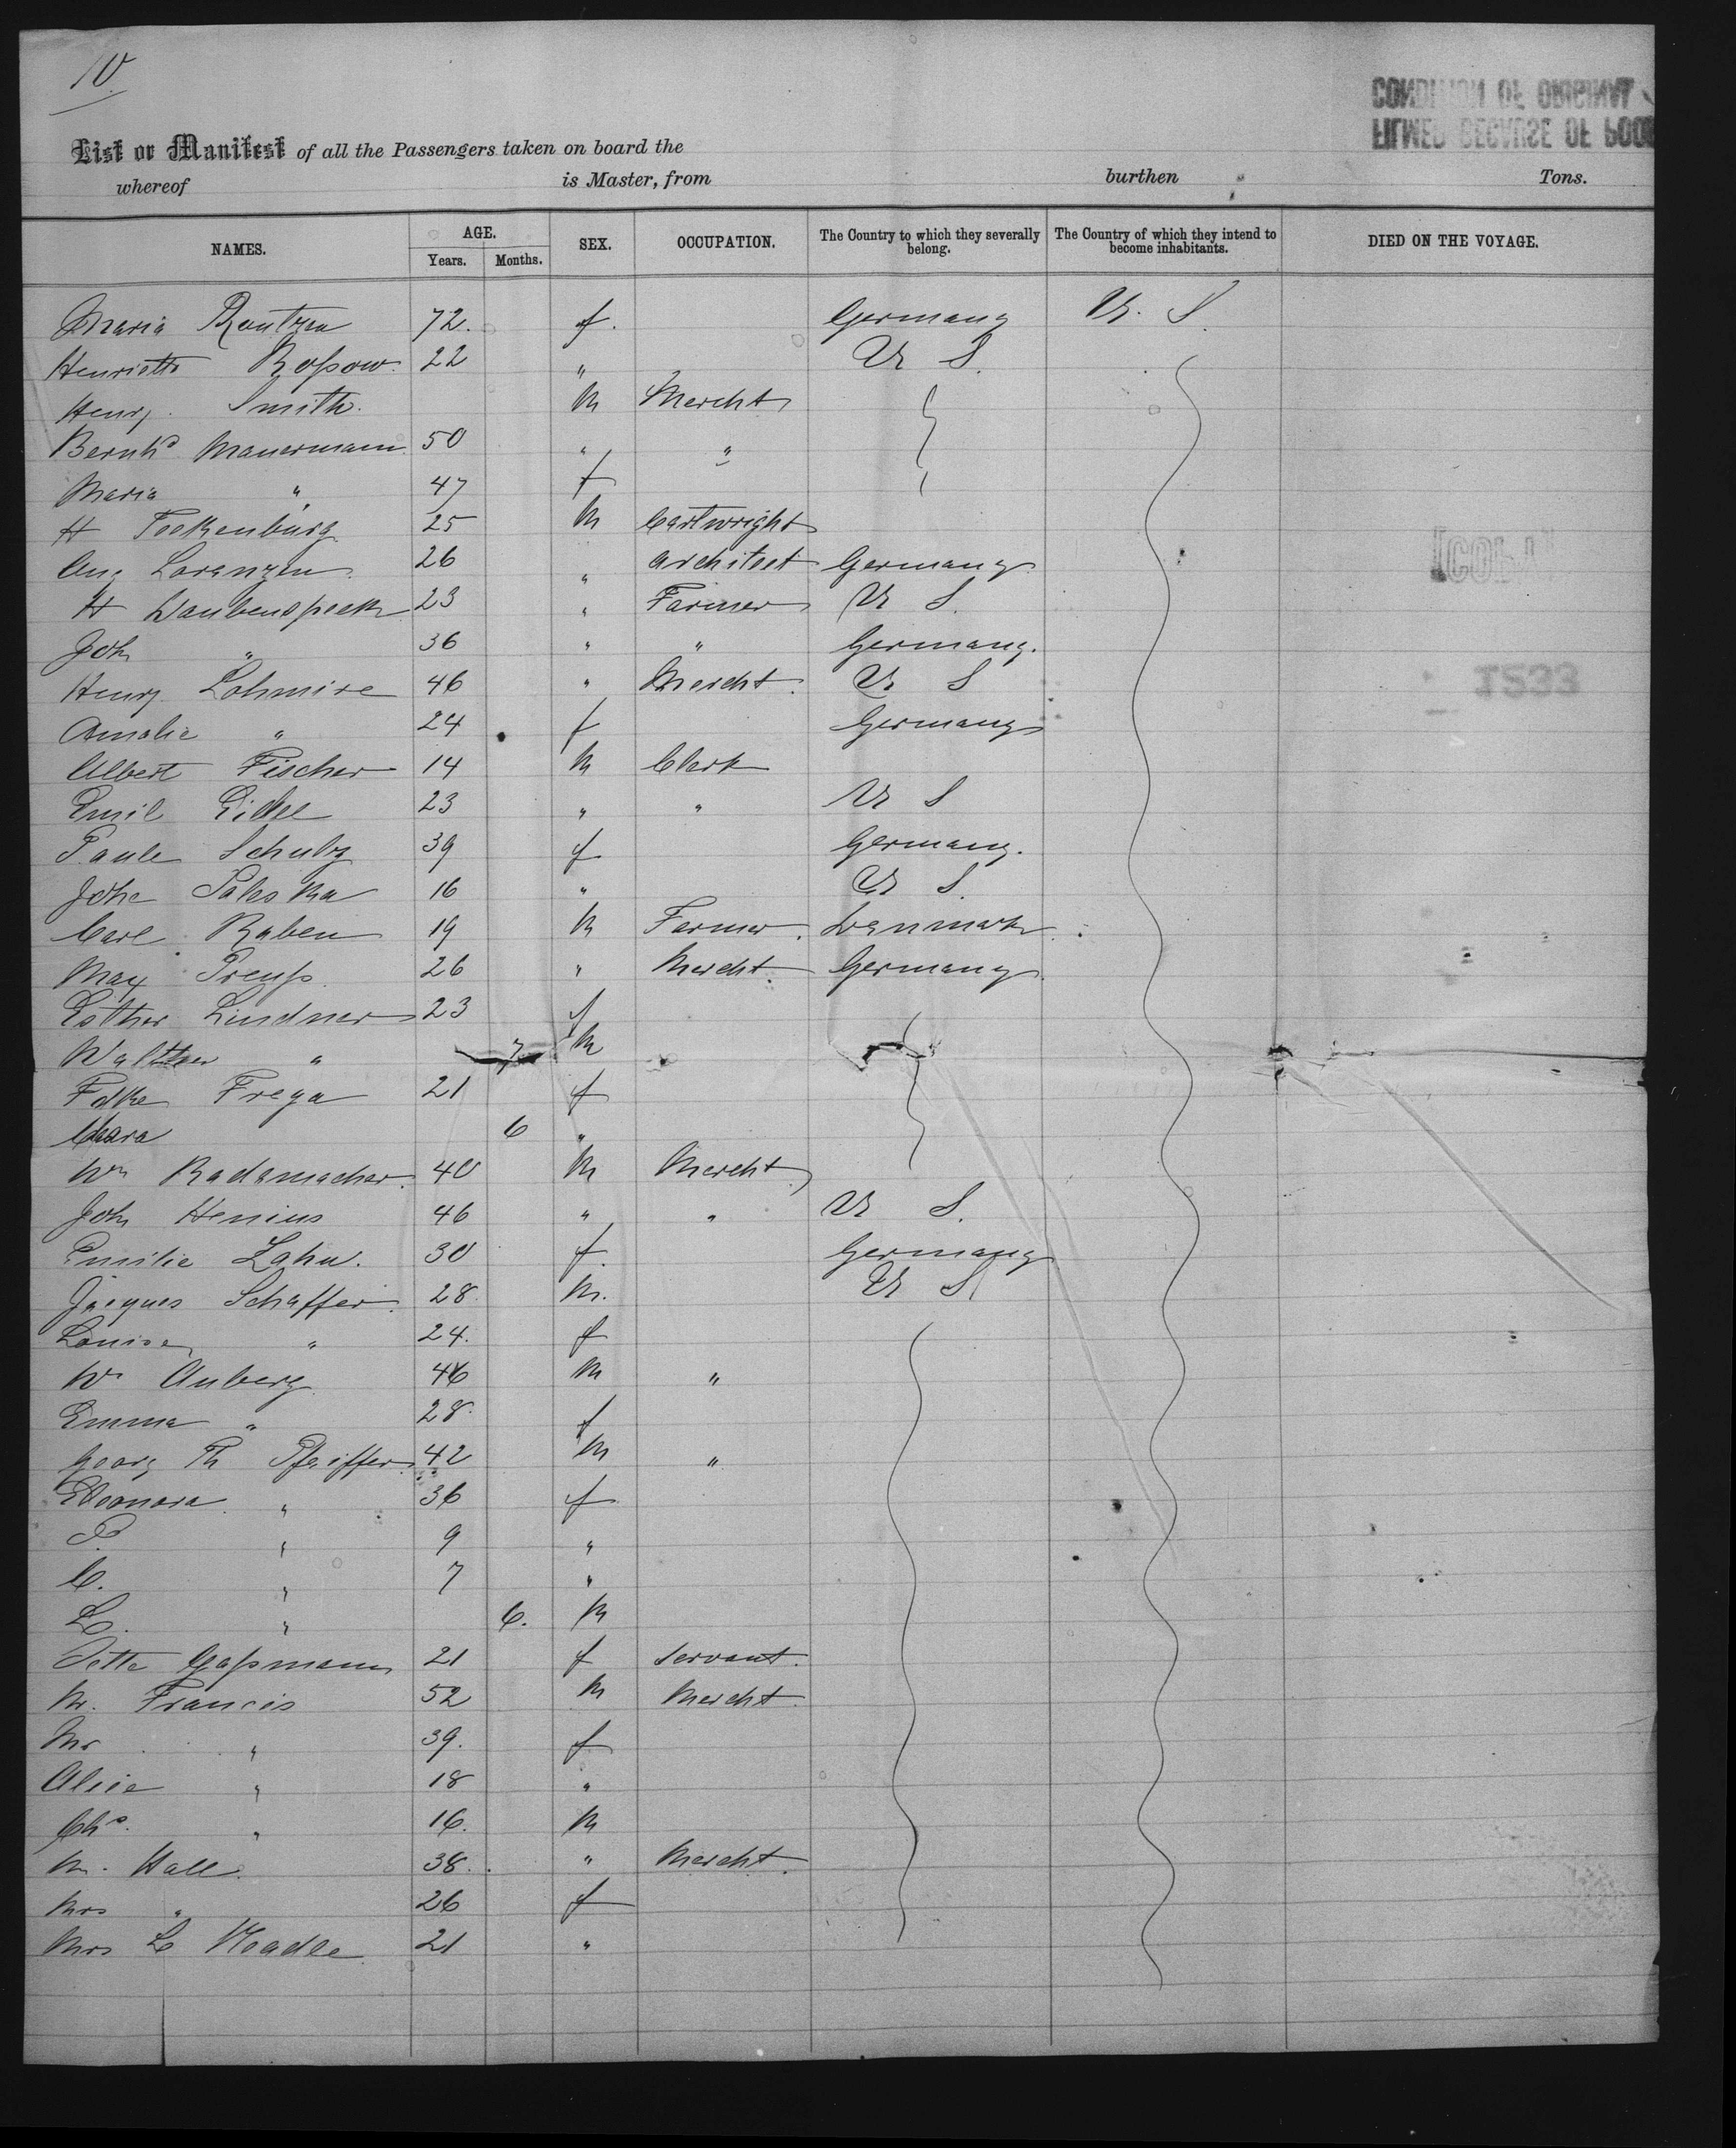 10.
List or Manifest of all the Passengers taken on board the
whereof is Master, from burthen Tons.
NAMES. AGE. Years. Months. SEX. OCCUPATION. The Country to which they severally belong. The Country of which they intend to become inhabitants. DIED ON THE VOYAGE.
Maria 72. f. Germany U. S.
Henrietta Roßow. 22 " U S.
Henry Smith. M Mercht
Bernhd Mauermann 50 " "
Maria " 47 f
H Teckenburg 25 M Cartwright
Aug Lorenzen 26 " Architect Germany
H Daubenspeck 23 " Farmer U S.
Joh " 36 " " Germany.
Henry Lohmire 46 " Mercht. U S
Amalie " 24 f Germany
Albert Fischer 14 M Clerk
Emil 23 " " U S
Paule Schulz 39 f Germany.
Johe Paleska 16 " U S.
Carl Raben 19 M Farmer. Denmark
Max Preuß 26 " Mercht. Germany.
Esther Lindner 23 f
Walther " 7 M
Folke Freya 21 f
Clara 6 "
Wm Rademacher. 40 M Mercht
Joh Henius 46 " " U S.
Emilie Zahn. 30 f. Germany
Jacques Schaffer. 28 M. U S
Louise " 24. f
Wm Auberg 46 M "
Emma " 28. f
Georg Th Pfeiffer. 42 M "
Eleonora " 36 f
P. " 9 "
C. " 7 "
L. " 6. M
Jette Gaßmann 21 f Servant.
Mr. Francis 52 M Mercht
Mrs " 39. f
Alice " 18 "
Chs. " 16. M
Mr. Hall. 38. " Mercht.
Mrs " 26 f
Mrs L Hoadle 21 "